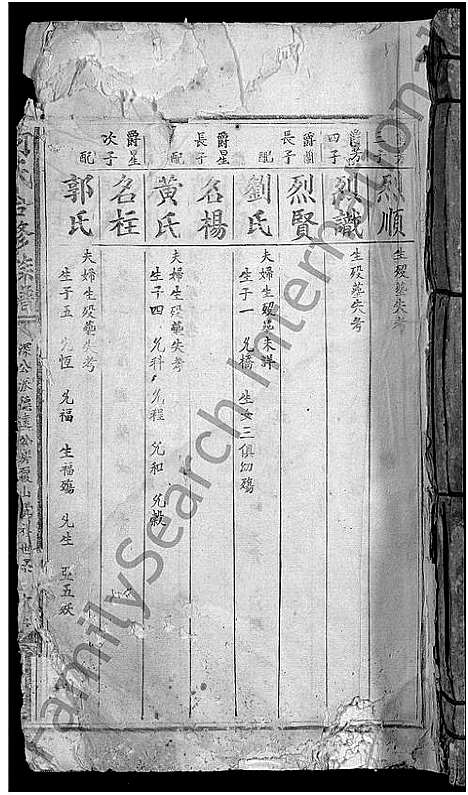 烈順
生殁葬失考
爵芳
四子
烈識
生殁葬失考
爵蘭
長子
烈賢
配
劉氏
夫婦生殁葬未詳
生子一 允橋 生女三俱幼殤
爵星
長子
名楊
配
黃氏
夫婦生殁葬失考
生子四 允科 允程 允和 允穀
爵星
次子
名柱
配
郭氏
夫婦生殁葬失考
生子五 允恆 允福 生福殤 允生 亞五殀
FamilySearch International